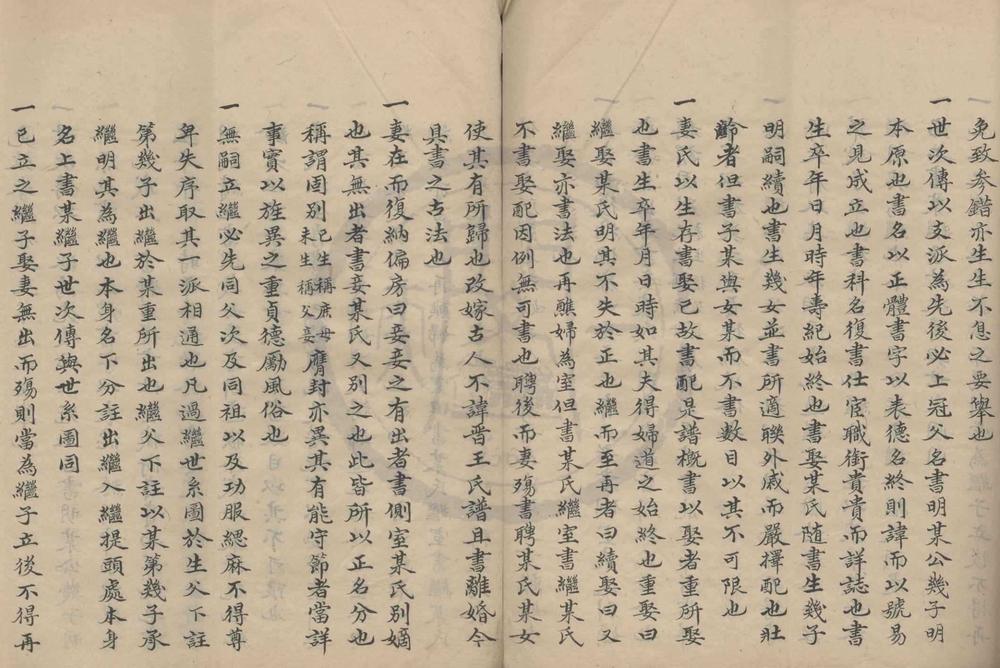 免致参錯亦生生不息之要舉也
一世次傳以支派為先後必上冠父名書明某公幾子明
本原也書名以正體書字以表德名終則諱而以號易
之見成立也書科名復書仕宦職銜貴貴而詳誌也書
生卒年日月時年壽紀始終也書娶某氏隨書生幾子
明嗣續也書生幾女並書所適聯外戚而嚴擇配也壯
齡者但書子某與女某而不書數目以其不可限也
一妻氏以生存書娶已故書配是譜概書以娶者重所娶
也書生卒年月日時如其夫得婦道之始終也重娶曰
繼娶某氏明其不失於正也繼而至再者曰續娶曰又
繼娶亦書法也再醮婦為室但書某氏繼室書繼某氏
不書娶配因例無可書也聘後而妻殤書聘某氏某女
使其有所歸也改嫁古人不諱晋王氏譜且書離婚今
具書之古法也
一妻在而復納偏房曰妾妾之有出者書側室某氏别嫡
也其無出者書妾某氏又别之也此皆所以正名分也
稱謂固别已生稱庶母未生稱父妾膺封亦異其有能守節者當詳
事實以旌異之重貞德勵風俗也
一無嗣立繼必先同父次及同祖以及功服緦麻不得尊
卑失序取其一派相通也凡過繼世系圖於生父下註
第幾子出繼於某重所出也繼父下註以某第幾子承
繼明其為繼也本身名下分註出繼入繼提頭處本身
名上書某繼子世次傳與世系圖同
一已立之繼子娶妻無出而殤則當為繼子立後不得再